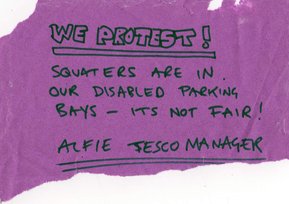 WE PROTEST!
SQUATERS ARE IN.
OUR DISABLED PARKING
BAYS — ITS NOT FAIR!
ALFIE TESCO MANAGER